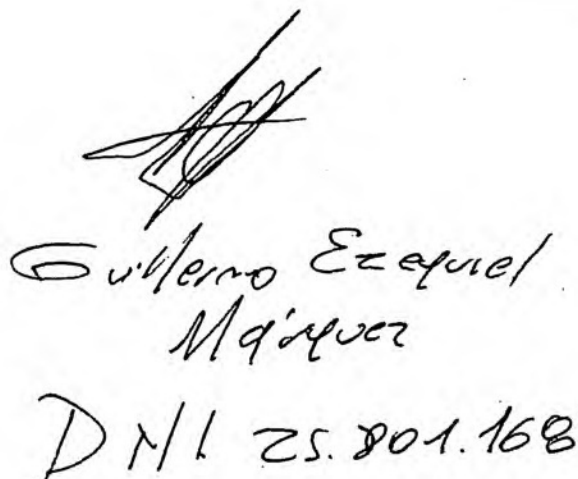 Guillermo Ezequiel
Márquez
DNI 25.801.168